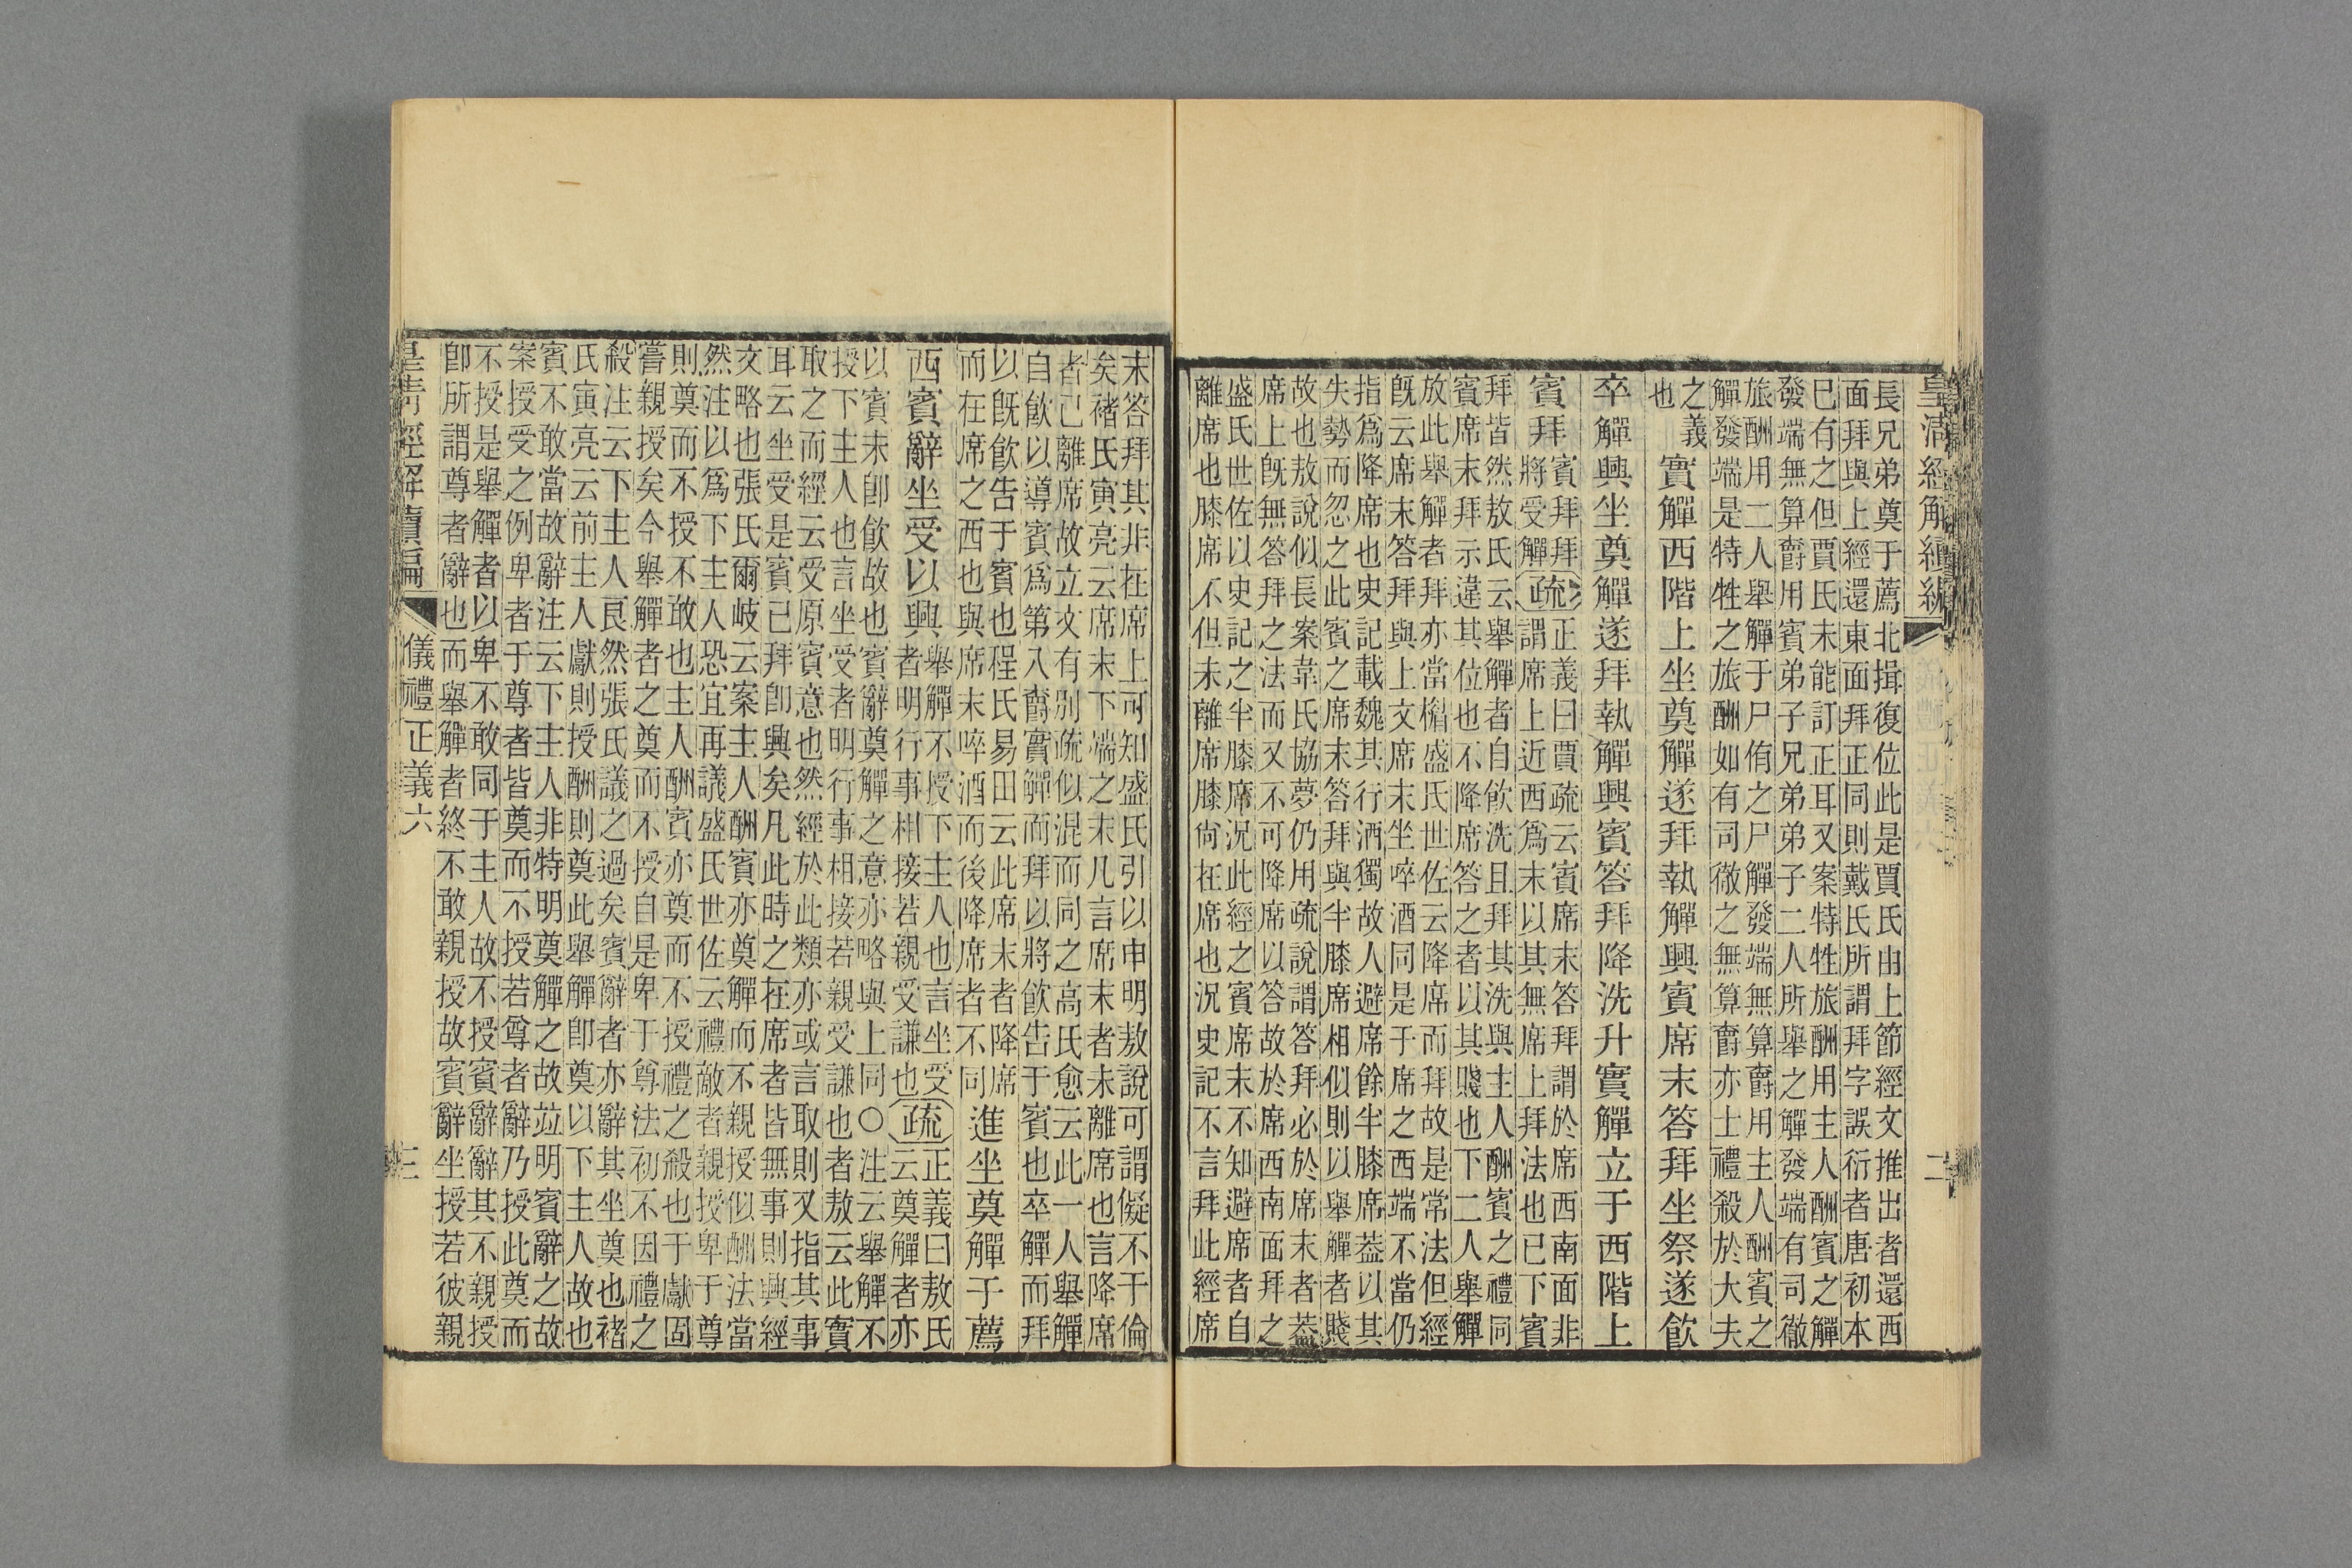 皇清經解續編
二
長兄弟奠于薦北揖復位此是賈氏由上節經文推出者還西
面拜與上經還東面拜正同則戴氏所謂拜字誤衍者唐初本
已有之但賈氏未能訂正耳又案特牲旅酬用主人酬賓之觶
發端無算爵用賓弟子兄弟弟子二人所舉之觶發端有司徹
旅酬用二人舉觶于尸侑之尸觶發端無算爵用主人酬賓之
觶發端是特牲之旅酬如有司徹之無算爵亦士禮殺於大夫
之義
也
實觶西階上坐奠觶遂拜執觶興賓席末答拜坐祭遂飲
卒觶興坐奠觶遂拜執觶興賓答拜降洗升實觶立于西階上
賓拜
賓拜拜
將受觶
疏
正義曰賈疏云賓席末答拜謂於席西南面非
謂席上近西爲末以其無席上拜法也已下賓
拜皆然敖氏云舉觶者自飲洗且拜其洗與主人酬賓之禮同
賓席末拜示違其位也不降席答之者以其賤也下二人舉觶
放此舉觶者拜亦當楣盛氏世佐云降席而拜故是常法但經
旣云席末答拜與上文席末坐啐酒同是于席之西端不當仍
指爲降席也史記載魏其行酒獨故人避席餘半膝席葢以其
失勢而忽之此賓之席末答拜與半膝席相似則以舉觶者賤
故也敖說似長案韋氏協夢仍用疏說謂答拜必於席末者葢
席上旣無答拜之法而又不可降席以答故於席西南面拜之
盛氏世佐以史記之半膝席況此經之賓席末不知避席者自
離席也膝席不但未離席膝尙在席也況史記不言拜此經席
末答拜其非在席上可知盛氏引以申明敖說可謂儗不于倫
矣褚氏寅亮云席末下端之末凡言席末者未離席也言降席
者已離席故立文有別疏似混而同之高氏愈云此一人舉觶
自飲以導賓爲第入爵實觶而拜以將飲告于賓也卒觶而拜
以旣飲告于賓也程氏易田云此席末者降席
而在席之西也與席末啐酒而後降席者不同
進坐奠觶于薦
西賓辭坐受以興
舉觶不授下主人也言坐受
者明行事相接若親受謙也
疏
正義曰敖氏
云奠觶者亦
以賓未卽飲故也賓辭奠觶之意亦略與上同○注云舉觶不
授下主人也言坐受者明行事相接若親受謙也者敖云此實
取之而經云受原賓意也然經於此類亦或言取則又指其事
耳云坐受是賓已拜卽興矣凡此時之在席者皆無事則興經
文略也張氏爾岐云案主人酬賓亦奠觶而不親授似酬法當
然注以爲下主人恐宜再議盛氏世佐云禮敵者親授卑于尊
則奠而不授不敢也主人酬賓亦奠而不授禮之殺也于獻固
嘗親授矣今舉觶者之奠而不授自是卑于尊法初不因禮之
殺注云下主人艮然張氏議之過矣賓辭者亦辭其坐奠也褚
氏寅亮云前主人獻則授酬則奠此舉觶卽奠以下主人故也
賓不敢當故辭注云下主人非特明奠觶之故竝明賓辭之故
案授受之例卑者于尊者皆奠而不授若尊者辭乃授此奠而
不授是舉觶者以卑不敢同于主人故不授賓辭辭其不親授
卽所謂尊者辭也而舉觶者終不敢親授故賓辭坐授若彼親
皇清經解續編
儀禮正義六
三